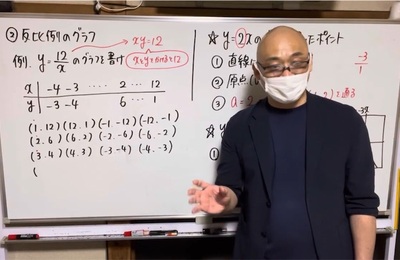 ② 反比例のグラフ
例. y = 12/x のグラフを書け
xy = 12
xとyをかけると12
x | -4 -3 ‥‥ 2 … 12
y | -3 -4 6 … 1
(1.12) (12.1) (-1.-12) (-12.-1)
(2.6) (6.2) (-2.-6) (-6.-2)
(3.4) (4.3) (-3-4) (-4.-3)
(
☆ y =
ポイント
① 直線
② 原点
③ a =
-3/1
通る
☆
①